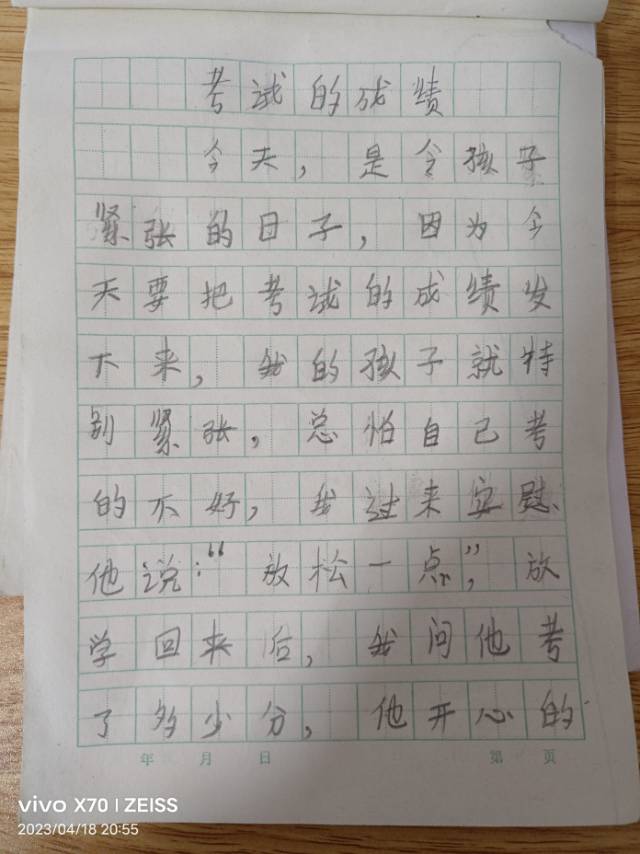 考试的成绩
今天，是令孩子
紧张的日子，因为今
天要把考试的成绩发
下来，我的孩子就特
别紧张，总怕自己考
的不好，我过来安慰
他说：“放松一点”，放
学回来后，我问他考
了多少分，他开心的
年 月 日 第 页
vivo X70 | ZEISS
2023/04/18 20:55